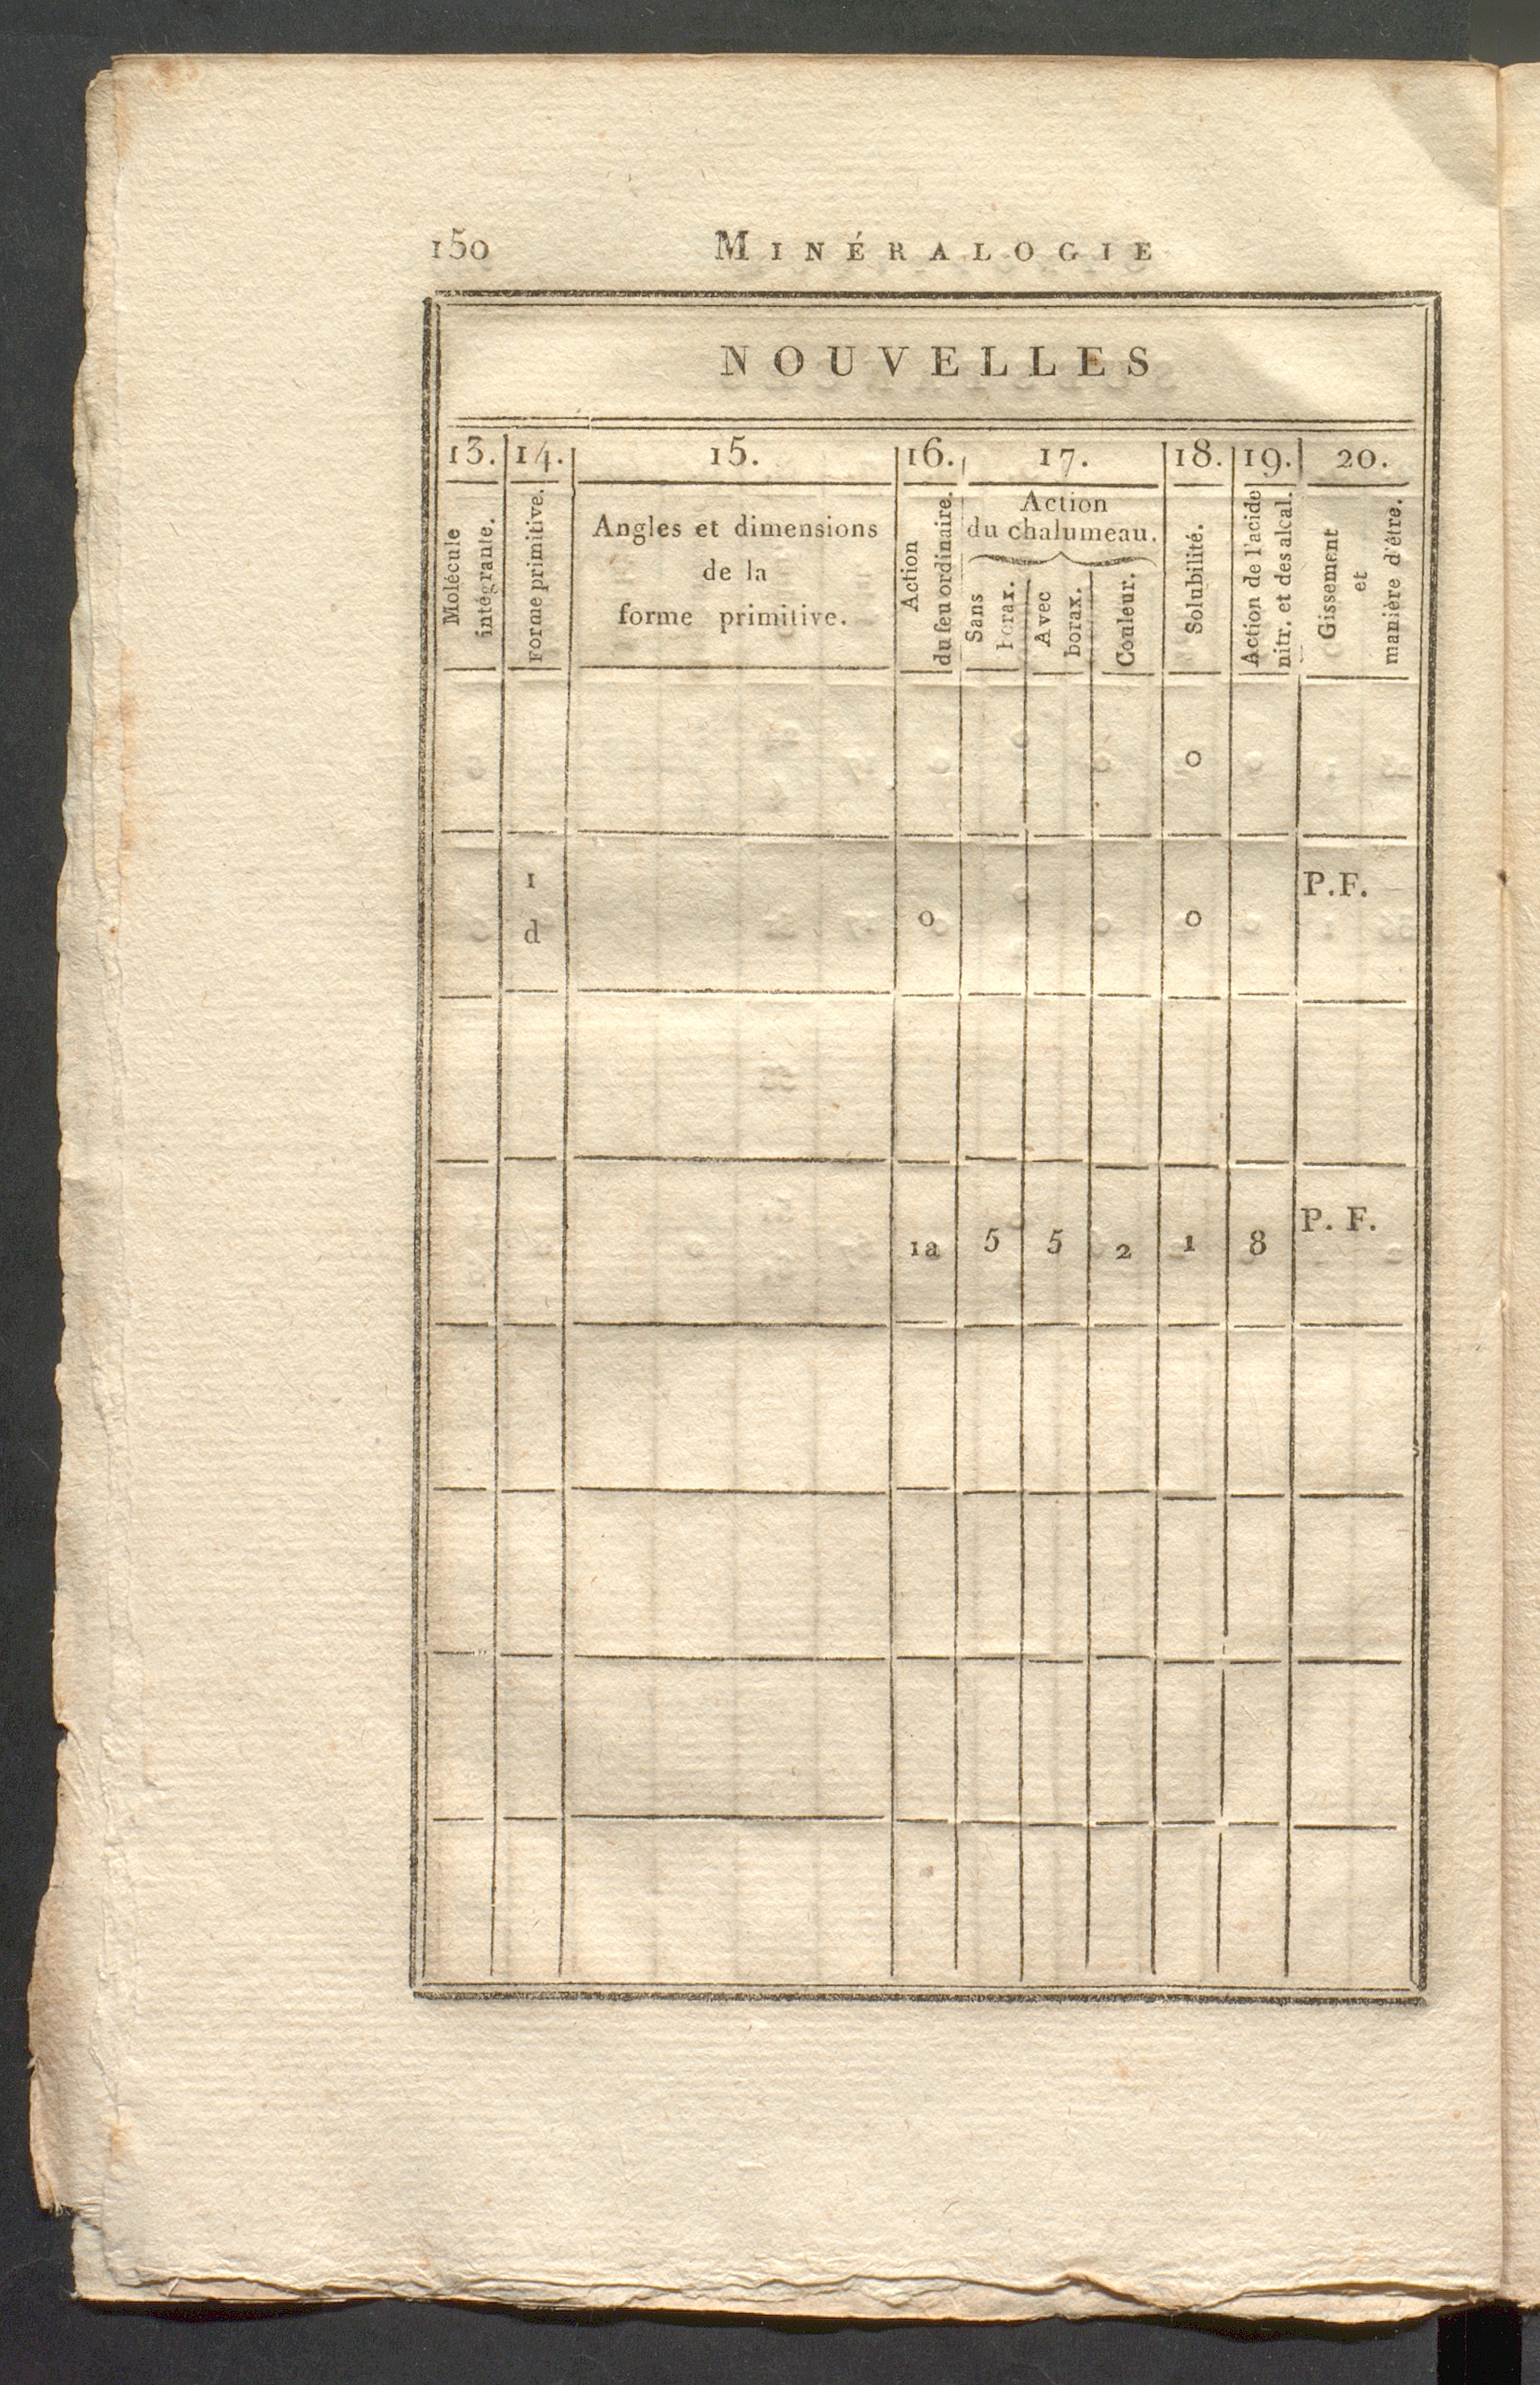 150 MINÉRALOGIE
NOUVELLES
13. 14. 15. 16. 17. 18. 19. 20.
Molécule
intégrante.
Forme primitive.
Angles et dimensions
de la
forme primitive.
Action
du feu ordinaire.
Action
du chalumeau.
Sans
borax.
Avec
borax.
Couleur.
Solubilité.
Action de l'acide
nitr. et des alcal.
Gissement
et
manière d'être.
0
1
d
0 0
P.F.
1a 5 5 2 1 8
P. F.